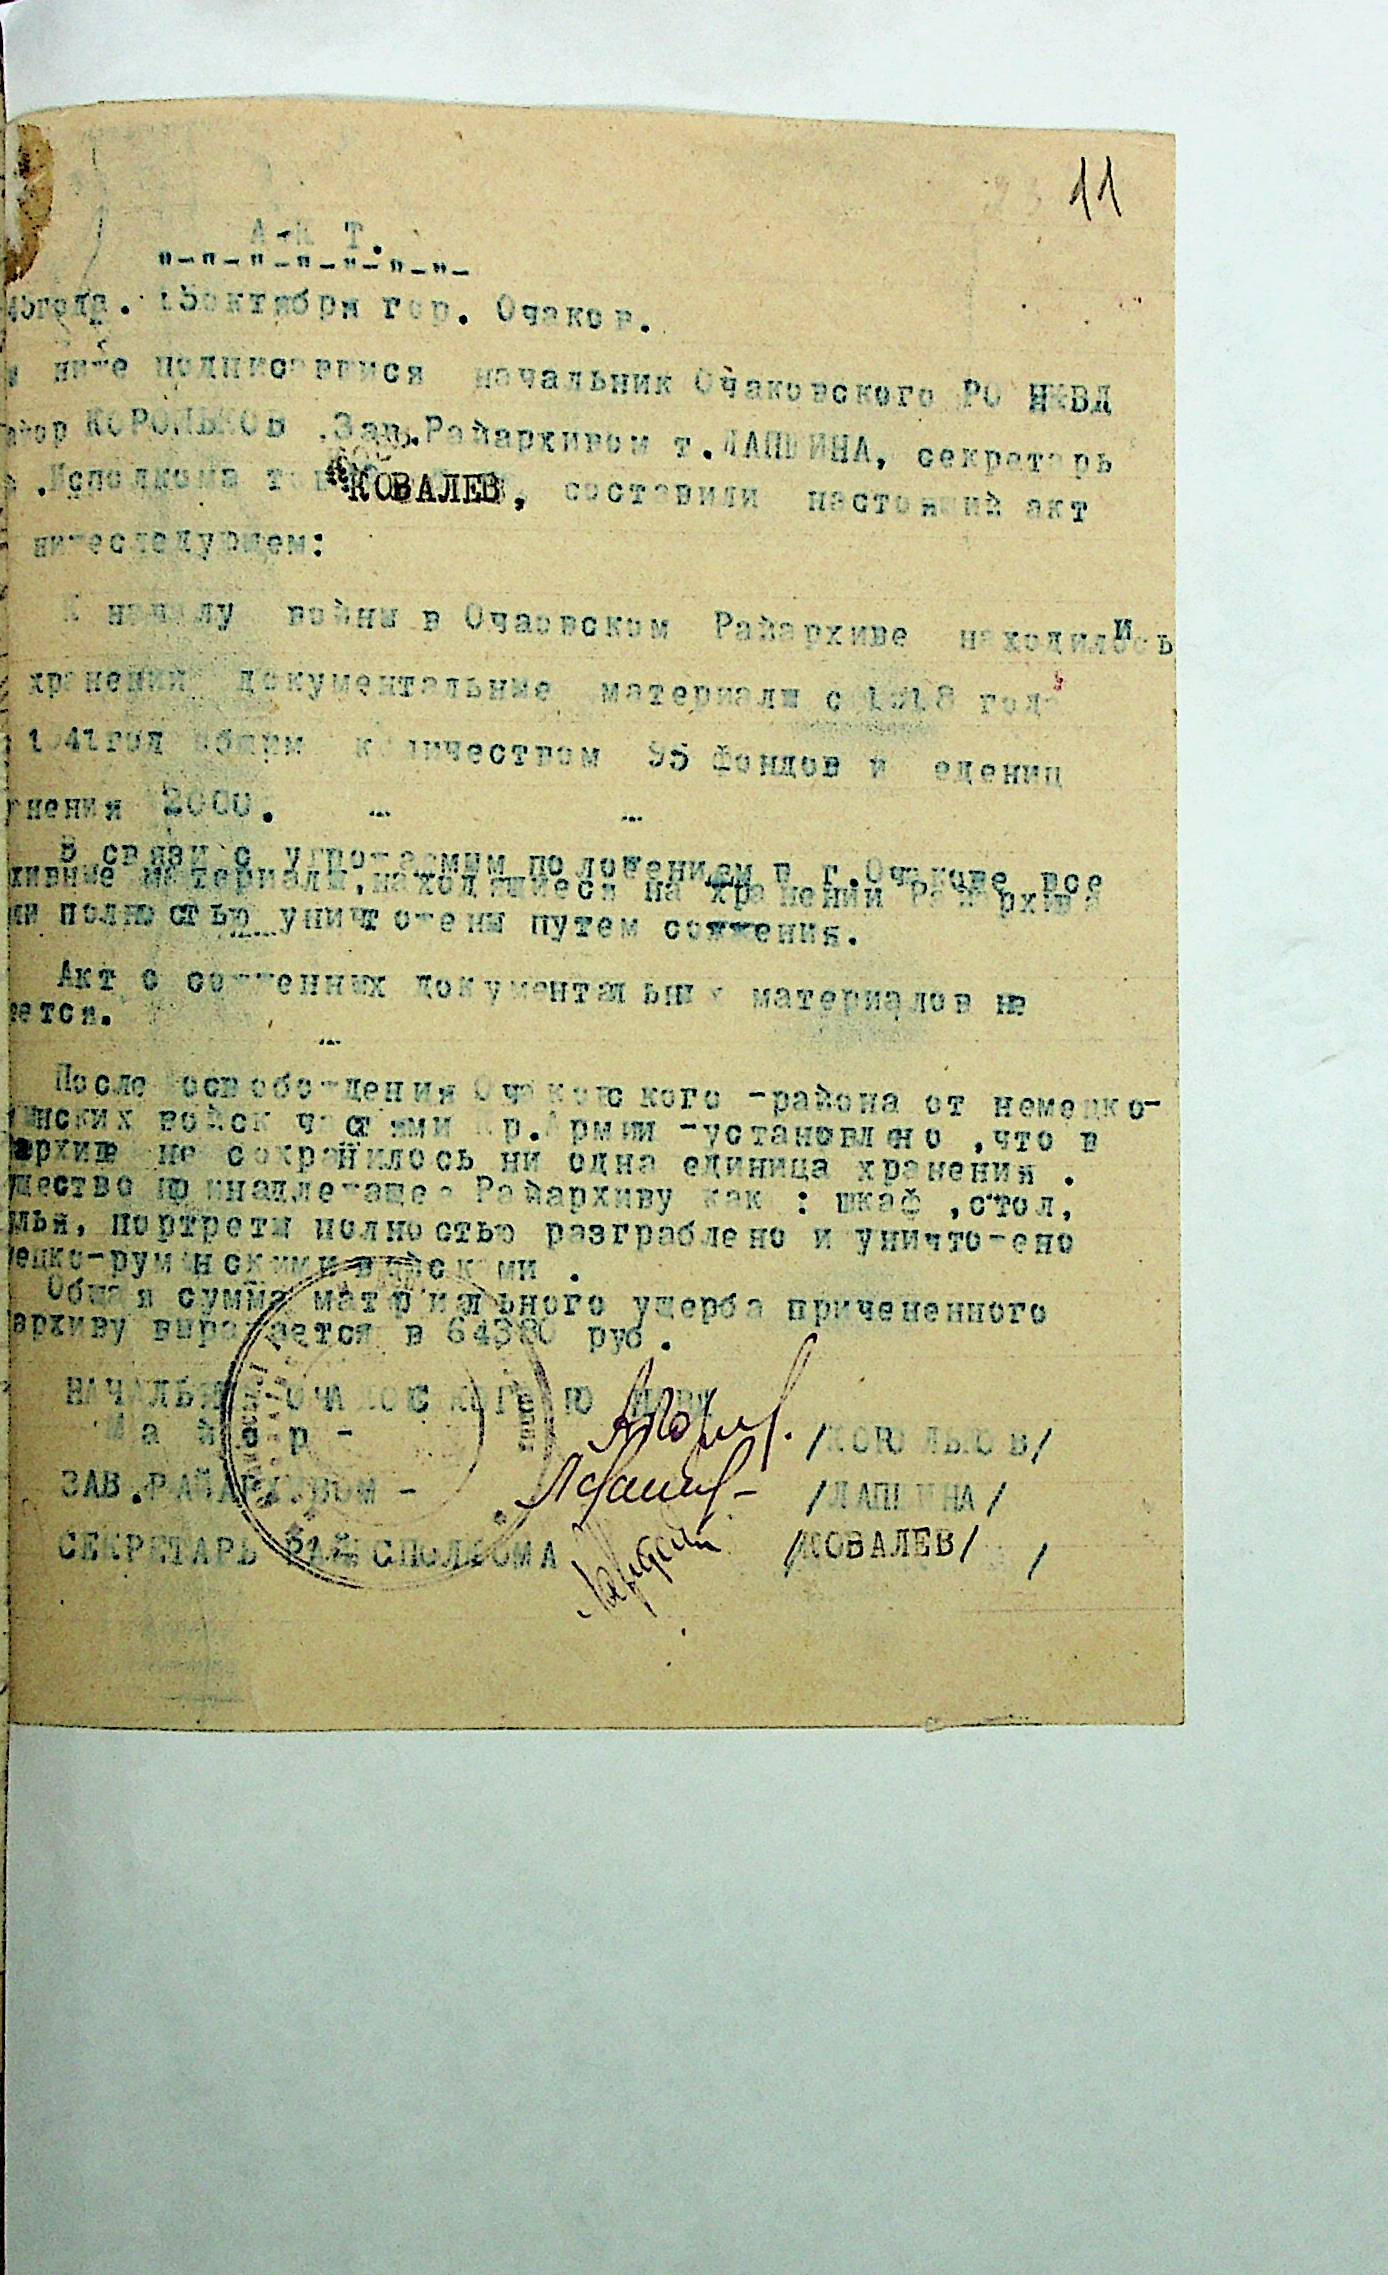 11
А К Т.
"-"-"-"-"-"-"-
45года. 15октября гор. Очаков.
ниже подписавшися начальник Очаковского РО НКВД
айор КОРОЛЬКОВ .Зав.Райархивом т.ЛАПШИНА, секретарь
.Исполкома тов КОВАЛЕВ, составили настоящий акт
нижеследующем:
К началу войны в Очаовском Райархиве находились
хранении документальные материалы с 1918 года
1941год общим количеством 95 фондов и едениц
нения 2000.
В связи с угрожаемым положением в г.Очакове все
хивные материалы,находящиеся на хранении Райархива
ли полностью уничтожены путем сожжения.
Акт о сожженных документальных материалов не
ется.
После освобождения Очаковского -района от немецко-
ынских войск частями Кр.Армии -установлено ,что в
архиве не сохранилось ни одна единица хранения .
щество принадлежащее Райархиву как : шкаф ,стол,
лья, портреты полностью разграблено и уничтожено
ецко-румынскими войсками .
Общая сумма материального ущерба приченного
архиву выражается в 64380 руб.
НАЧАЛЬНИК ОЧАКОВСКОГО РО НКВД
М а й о р - /КОРОЛЬКОВ/
ЗАВ.РАЙАРХИВОМ - /ЛАПШИНА/
СЕКРЕТАРЬ РАЙИСПОЛКОМА /КОВАЛЕВ/ /